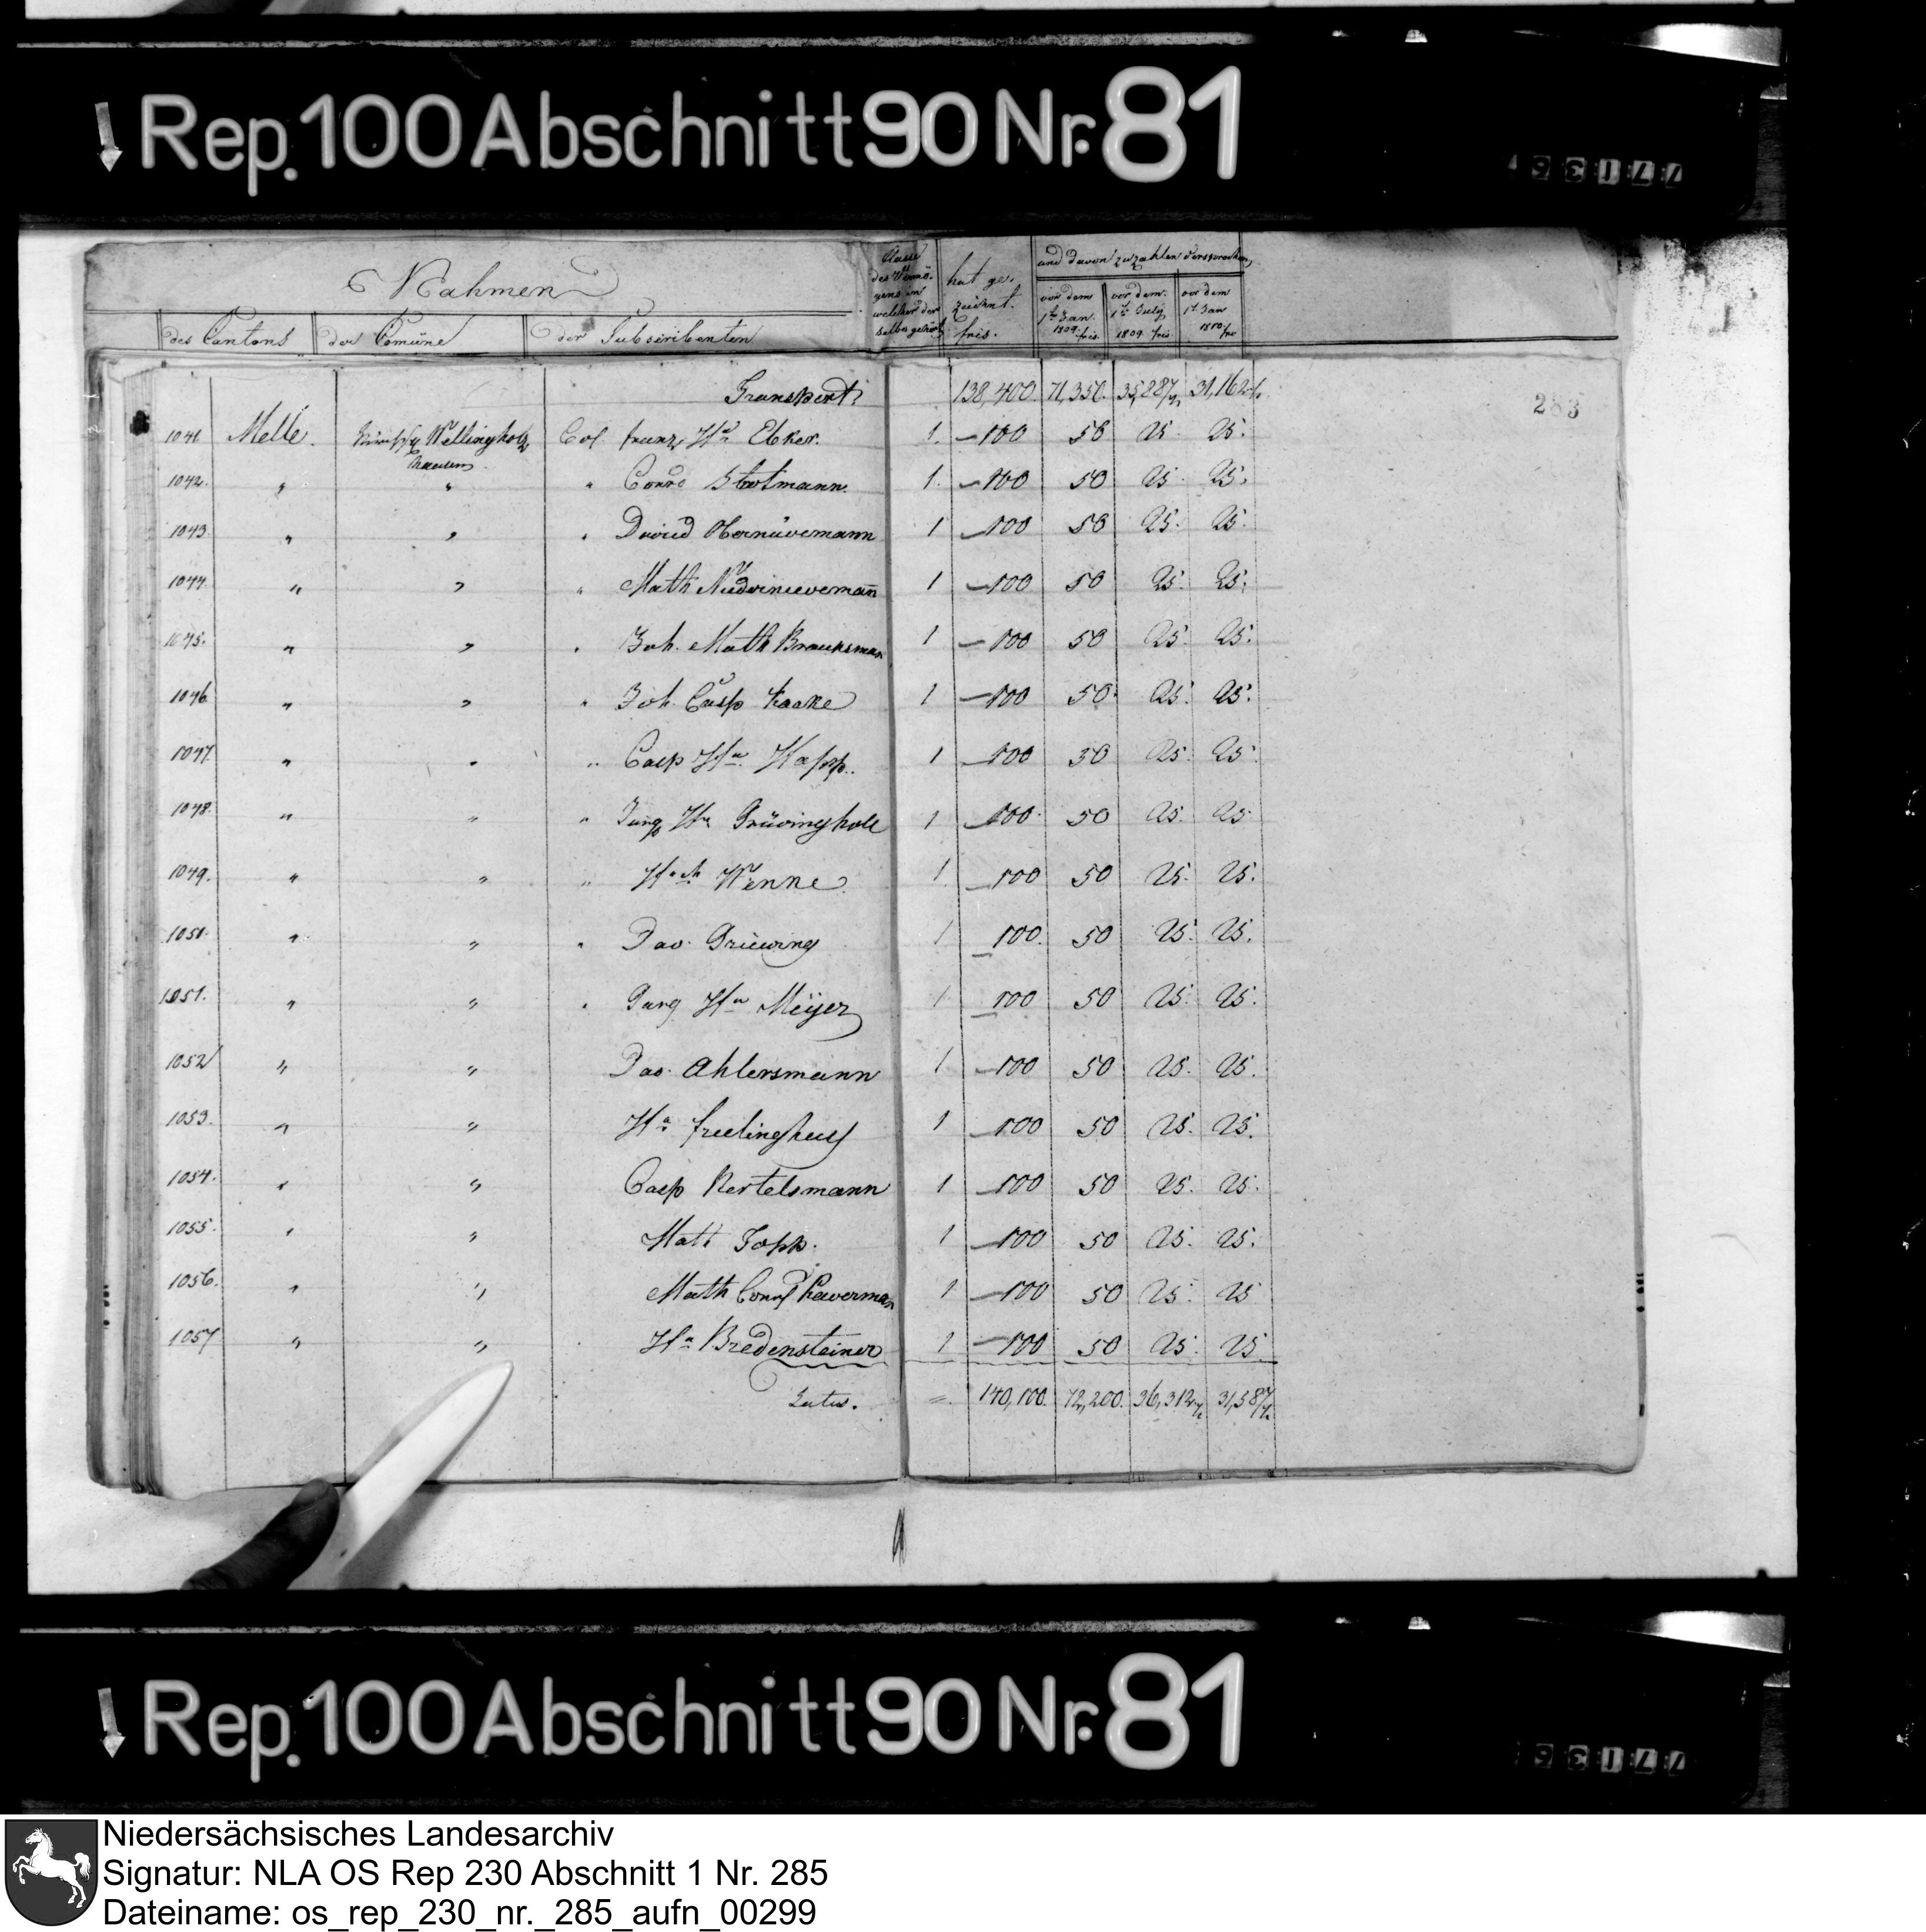 Rep. 100 Abschnitt 90 Nr. 81
Nahmen
des Cantons der Comüne der Subscribenten
Classe des Vermögens in welcher derselbe gehört
hat gezeichnet. frcs.
und davon zu zahlen versprochen
vor dem 1ten Jan. 1809. frcs.
vor dem 1ten July 1809 frcs
vor dem 1t Jan 1810 frc
Transport 138,400. 71,350. 35,887½ 31,162½
283
1041 Melle. Wellingholz Col. franz Hn Ebker. 1. 100 50 25. 25.
hausen
1042. " " " Conrd Strotmann. 1. 100 50 25. 25.
1043 " " " David Obernüvemann 1 100 50 25. 25.
1044. " " " Math Niedernievemañ 1 100 50 25. 25.
1045. " " " Joh. Math Brauksman 1 100 50 25. 25.
1046 " " " Joh. Casp Kaake 1 100 50. 25. 25.
1047. " " " Casp Hn. Happ. 1 100 50 25. 25.
1048. " " " Jung Hn Grüvinghole 1 100. 50 25. 25
1049. " " " Hnch Wenne. 1 100 50 25. 25.
1050. " " " Dav. Grüwing 1 100. 50 25. 25.
1051. " " " Jung Hn Meÿer 1 100 50 25. 25.
1052 " " Dav. Ahlersmann 1 100 50 25. 25.
1053. " " Hn freelinghaus 1 100 50 25. 25.
1054. " " Casp Kertelsmann 1 100 50 25. 25.
1055. " " Math Topp. 1 100 50 25. 25.
1056. " " Math Conrd Kaverman 1 100 50 25. 25
1057 " " Hn Bredensteiner 1 100 50 25. 25
Latus. = 140,100. 72,200. 36,312½ 31,587½
Rep. 100 Abschnitt 90 Nr. 81
Niedersächsisches Landesarchiv
Signatur: NLA OS Rep 230 Abschnitt 1 Nr. 285
Dateiname: os_rep_230_nr._285_aufn_00299